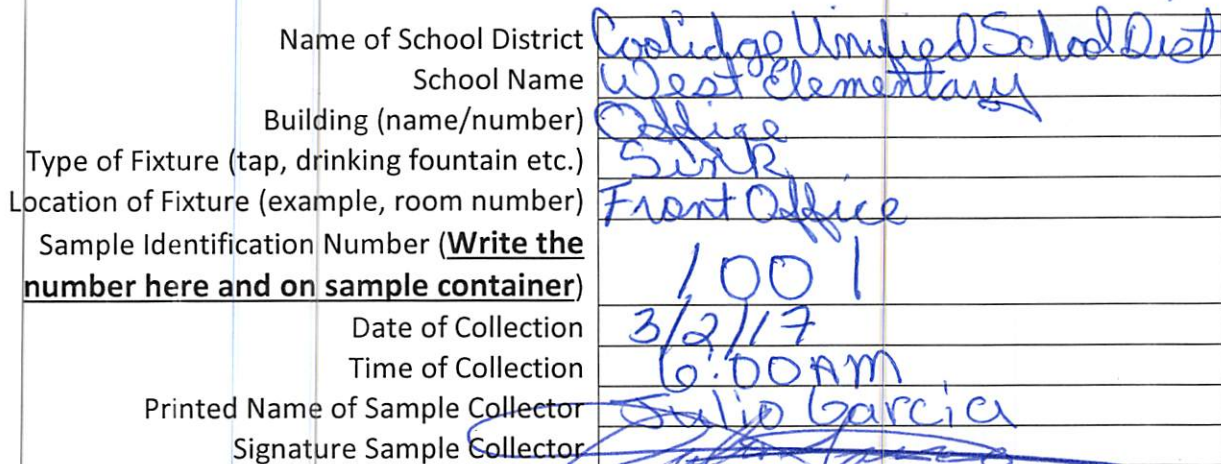 Name of School District Coolidge Unified School Dist
School Name West Elementary
Building (name/number) Office
Type of Fixture (tap, drinking fountain etc.) Sink
Location of Fixture (example, room number) Front Office
Sample Identification Number (Write the
number here and on sample container) 1001
Date of Collection 3/2/17
Time of Collection 6:00AM
Printed Name of Sample Collector Julio Garcia
Signature Sample Collector